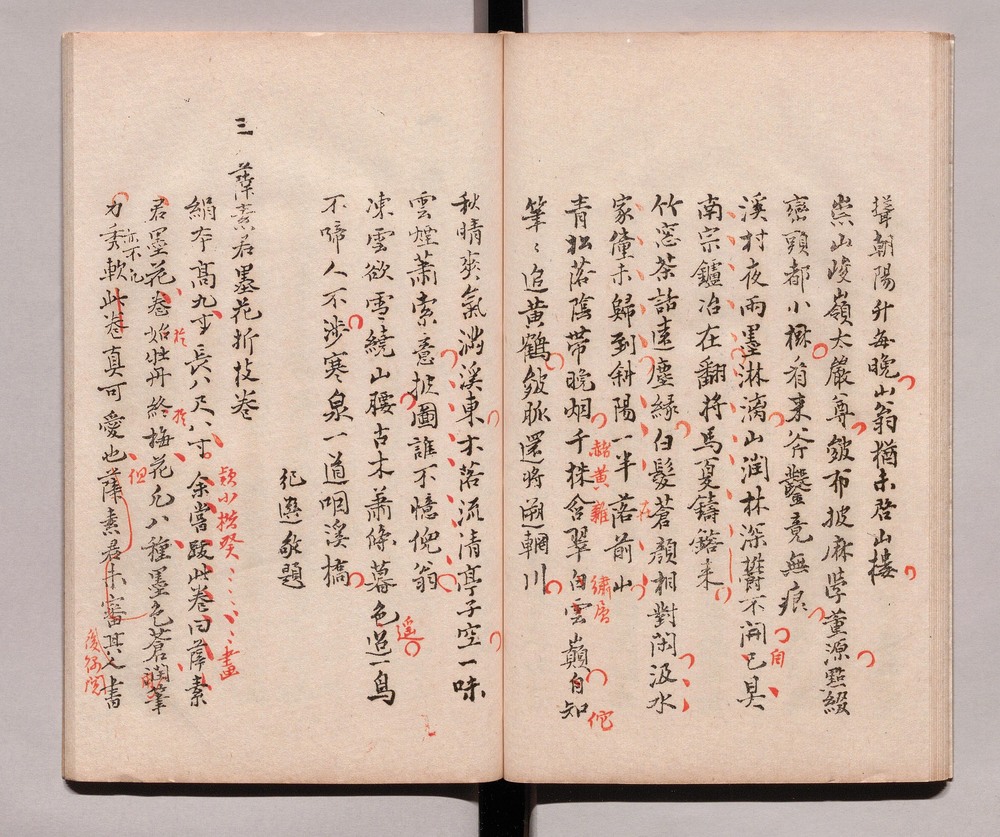 聳朝陽升每晚山翁猶未啓山樓
崇山峻嶺太嚴尊皴布披麻學董源點綴
巒頭都小楙看来斧鑿竟無痕
溪村夜雨墨淋漓山潤林深欝不開已具
自
南宗鑪冶在翻将馬夏鑄鎔来
竹窓茶話遠塵縁白髮蒼顔相對閑汲水
家僮未歸到斜陽一半落前山
在
青松落陰帯晩烟千株含翠白雲巔自知
黄
筆〻追黄鶴皴脈還将遡輞川
秋晴爽氣滿溪東木落流清亭子空一味
雲煙蕭索意披圖誰不憶倪翁
凍雲欲雪繞山腰古木蕭條暮色迢一鳥
遥
不啼人不渉寒泉一道咽溪橋
敬題
三 薛素君墨花折技卷
絹本高九寸長八尺八寸 余嘗跋此卷曰薛素
君墨花卷始牡丹終梅花凡八種墨色蒼潤筆
力秀軟此卷真可愛也薛素君未審其人書
但